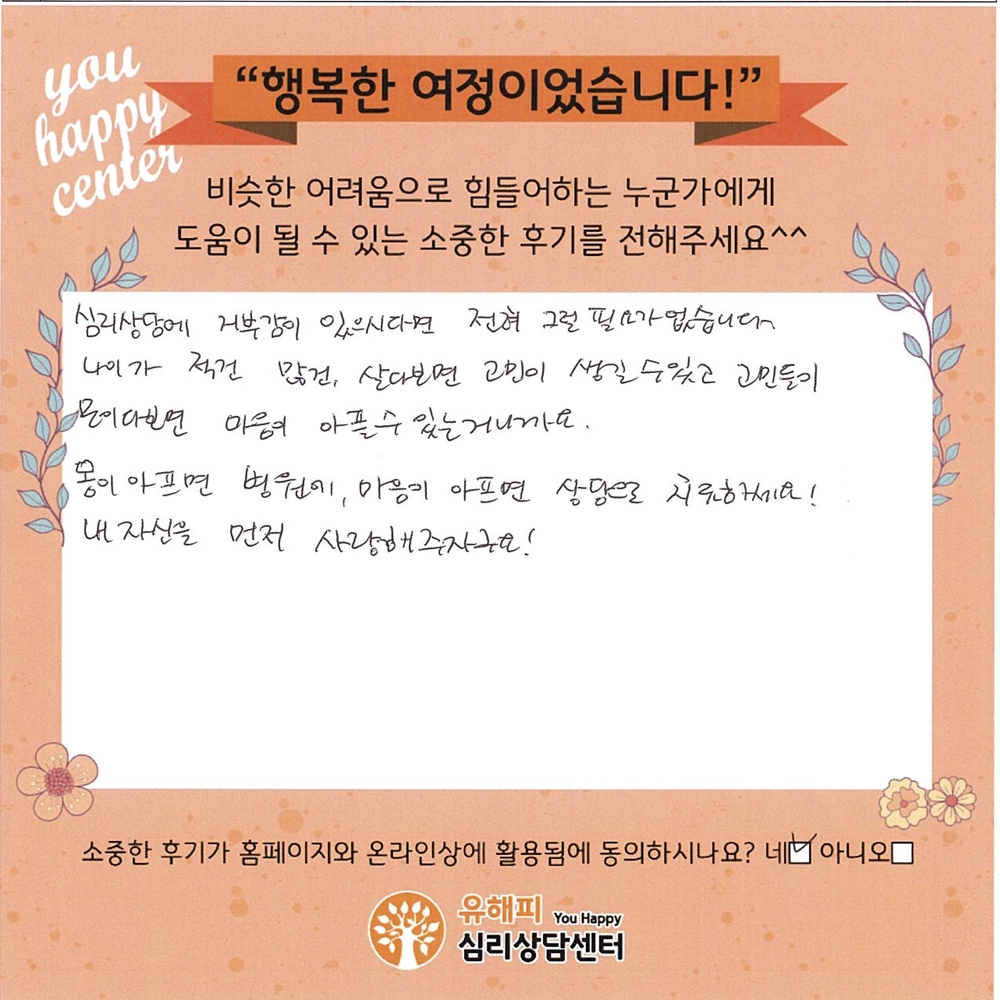 you
happy
center
“행복한 여정이었습니다!”
비슷한 어려움으로 힘들어하는 누군가에게
도움이 될 수 있는 소중한 후기를 전해주세요^^
심리상담에 거부감이 있으시다면 전혀 그럴 필요가 없습니다.
나이가 적건 많건, 살다보면 고민이 생길 수 있고 고민들이
모이다보면 마음이 아플 수 있는거니까요.
몸이 아프면 병원에, 마음이 아프면 상담으로 치유하세요!
내 자신을 먼저 사랑해주자구요!
소중한 후기가 홈페이지와 온라인상에 활용됨에 동의하시나요? 네 아니오
유해피 You Happy
심리상담센터